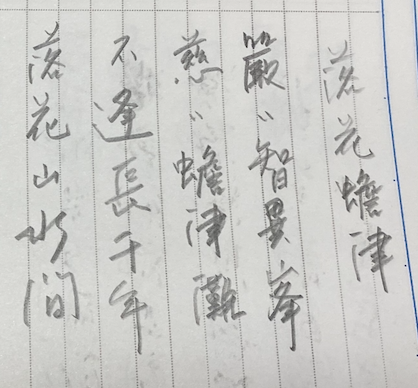 落花蟾津
嚴〃智異峯
慈〃蟾津灘
不逢長千年
落花山水間